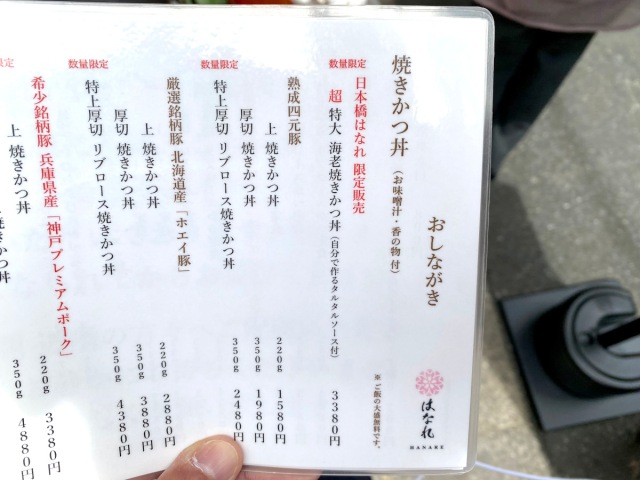 おしながき
はなれ
HANARE
焼きかつ丼（お味噌汁・香の物 付）
※ご飯の大盛無料です。
日本橋はなれ 限定販売
数量限定 超 特大 海老焼きかつ丼（自分で作るタルタルソース付） 3380円
熟成四元豚
上 焼きかつ丼 220g 1580円
厚切 焼きかつ丼 350g 1980円
数量限定 特上厚切 リブロース焼きかつ丼 350g 2480円
厳選銘柄豚 北海道産「ホエイ豚」
上 焼きかつ丼 220g 2880円
厚切 焼きかつ丼 350g 3880円
数量限定 特上厚切 リブロース焼きかつ丼 350g 4380円
希少銘柄豚 兵庫県産「神戸プレミアムポーク」
上 焼きかつ丼 220g 3380円
焼きかつ丼 350g 4880円
限定